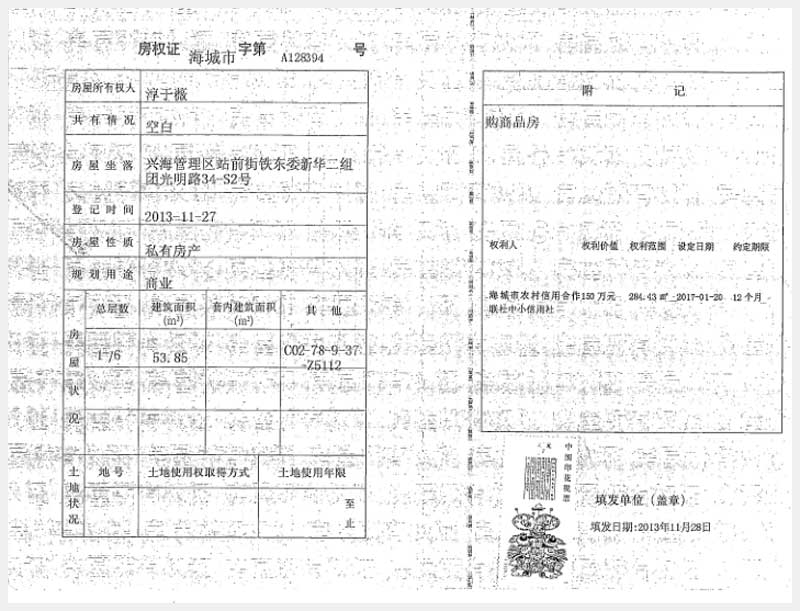 房权证 海城市 字第 A128394 号
房屋所有权人 淳于薇
共有情况 空白
房屋坐落 兴海管理区站前街铁东委新华二组
团光明路34-S2号
登记时间 2013-11-27
房屋性质 私有房产
规划用途 商业
房屋状况
总层数 建筑面积(m²) 套内建筑面积(m²) 其他
1-/6 53.85 C02-78-9-37
-Z5112
土地状况
地号 土地使用权取得方式 土地使用年限
至
止
附记
购商品房
权利人 权利价值 权利范围 设定日期 约定期限
海城市农村信用合作150万元 284.43㎡ 2017-01-20 12个月
联社中小信用社
中国印花税票
填发单位(盖章)
填发日期:2013年11月28日